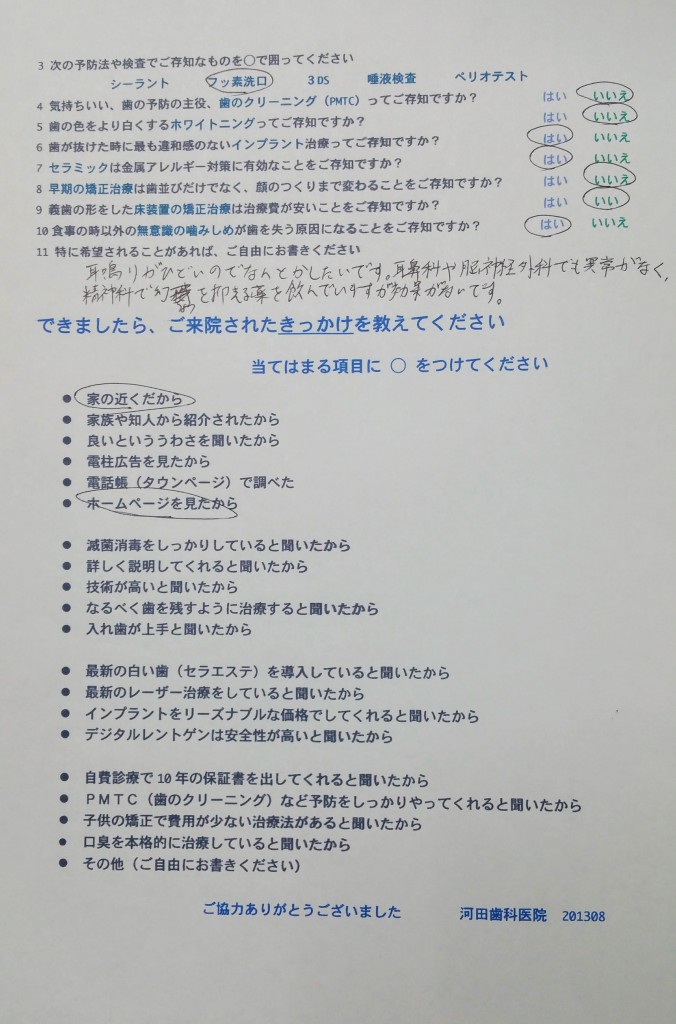 3 次の予防法や検査でご存知なものを○で囲ってください
シーラント フッ素洗口 3DS 唾液検査 ペリオテスト
4 気持ちいい、歯の予防の主役、歯のクリーニング（PMTC）ってご存知ですか？ はい いいえ
5 歯の色をより白くするホワイトニングってご存知ですか？ はい いいえ
6 歯が抜けた時に最も違和感のないインプラント治療ってご存知ですか？ はい いいえ
7 セラミックは金属アレルギー対策に有効なことをご存知ですか？ はい いいえ
8 早期の矯正治療は歯並びだけでなく、顔のつくりまで変わることをご存知ですか？ はい いいえ
9 義歯の形をした床装置の矯正治療は治療費が安いことをご存知ですか？ はい いい
10 食事の時以外の無意識の噛みしめが歯を失う原因になることをご存知ですか？ はい いいえ
11 特に希望されることがあれば、ご自由にお書きください
耳鳴りがひどいのでなんとかしたいです。耳鼻科や脳神経外科でも異常がなく、
精神科で幻聴を抑える薬を飲んでいますが効果がないです。
できましたら、ご来院されたきっかけを教えてください
当てはまる項目に ○ をつけてください
● 家の近くだから
● 家族や知人から紹介されたから
● 良いといううわさを聞いたから
● 電柱広告を見たから
● 電話帳（タウンページ）で調べた
● ホームページを見たから
● 滅菌消毒をしっかりしていると聞いたから
● 詳しく説明してくれると聞いたから
● 技術が高いと聞いたから
● なるべく歯を残すように治療すると聞いたから
● 入れ歯が上手と聞いたから
● 最新の白い歯（セラエステ）を導入していると聞いたから
● 最新のレーザー治療をしていると聞いたから
● インプラントをリーズナブルな価格でしてくれると聞いたから
● デジタルレントゲンは安全性が高いと聞いたから
● 自費診療で10年の保証書を出してくれると聞いたから
● ＰＭＴＣ（歯のクリーニング）など予防をしっかりやってくれると聞いたから
● 子供の矯正で費用が少ない治療法があると聞いたから
● 口臭を本格的に治療していると聞いたから
● その他（ご自由にお書きください）
ご協力ありがとうございました 河田歯科医院 201308